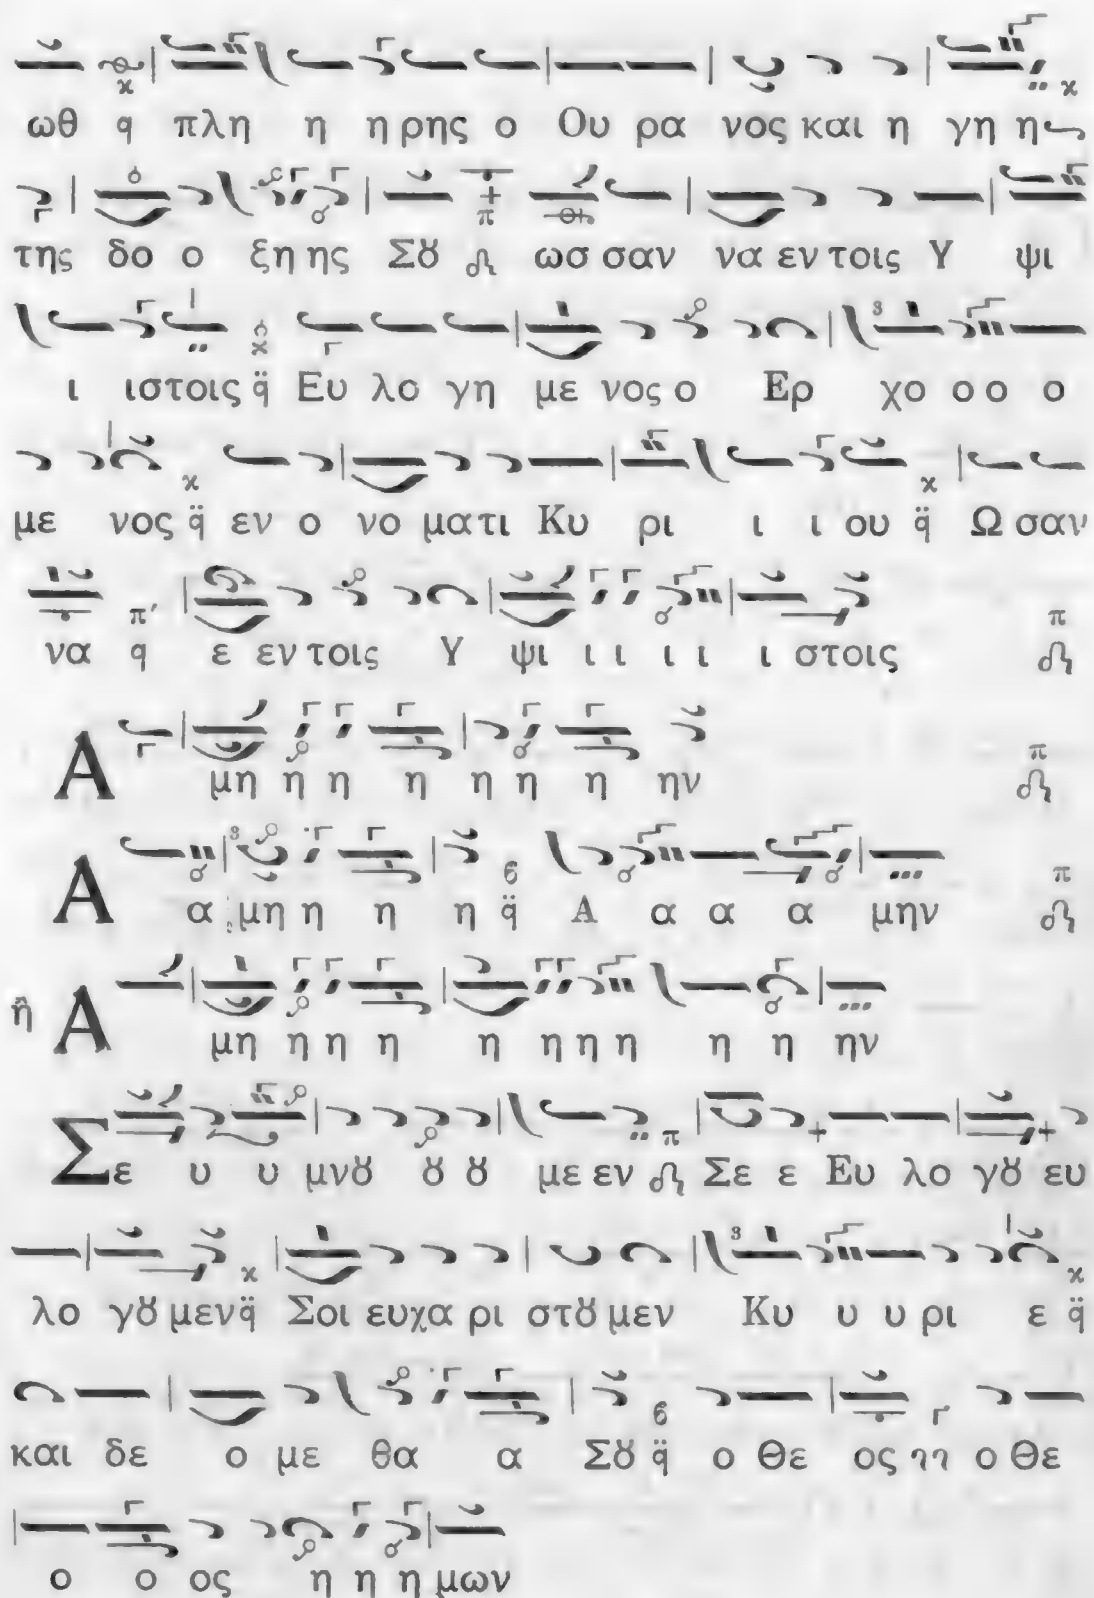 ωθ q πλη η ηρης ο Ου ρα νος και η γη η
της δο ο ξη ης Σȣ ωσ σαν να εν τοις Υ ψι
ι ιστοις q̈ Ευ λο γη με νος ο Ερ χο ο ο ο
με νος q̈ εν ο νο ματι Κυ ρι ι ι ου q̈ Ω σαν
να q ε εν τοις Υ ψι ι ι ι ι ι στοις
Α μη η η η η η η ην
Α α μη η η η q̈ Α α α α μην
ἢ Α μη η η η η η η η η η ην
Σε υ υ μνȣ ȣ ȣ με εν Σε ε Ευ λο γȣ ευ
λο γȣ μεν q̈ Σοι ευχα ρι στȣ μεν Κυ υ υ ρι ε q̈
και δε ο με θα α Σȣ q̈ ο Θε ος ο Θε
ο ο ος η η η μων